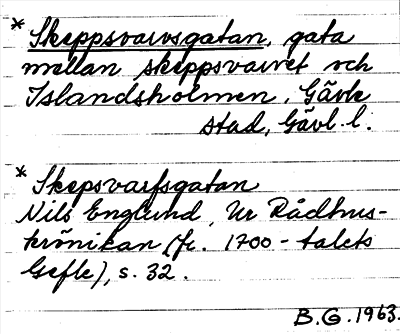 * Skeppsvarvsgatan, gata
mellan skeppsvarvet och
Islandsholmen, Gävle
stad, Gävl. l.
* Skepsvarfsgatan
Nils Englund, Ur Rådhus-
krönikan (fr. 1700-talets
Gefle), s. 32.
B.G. 1963.